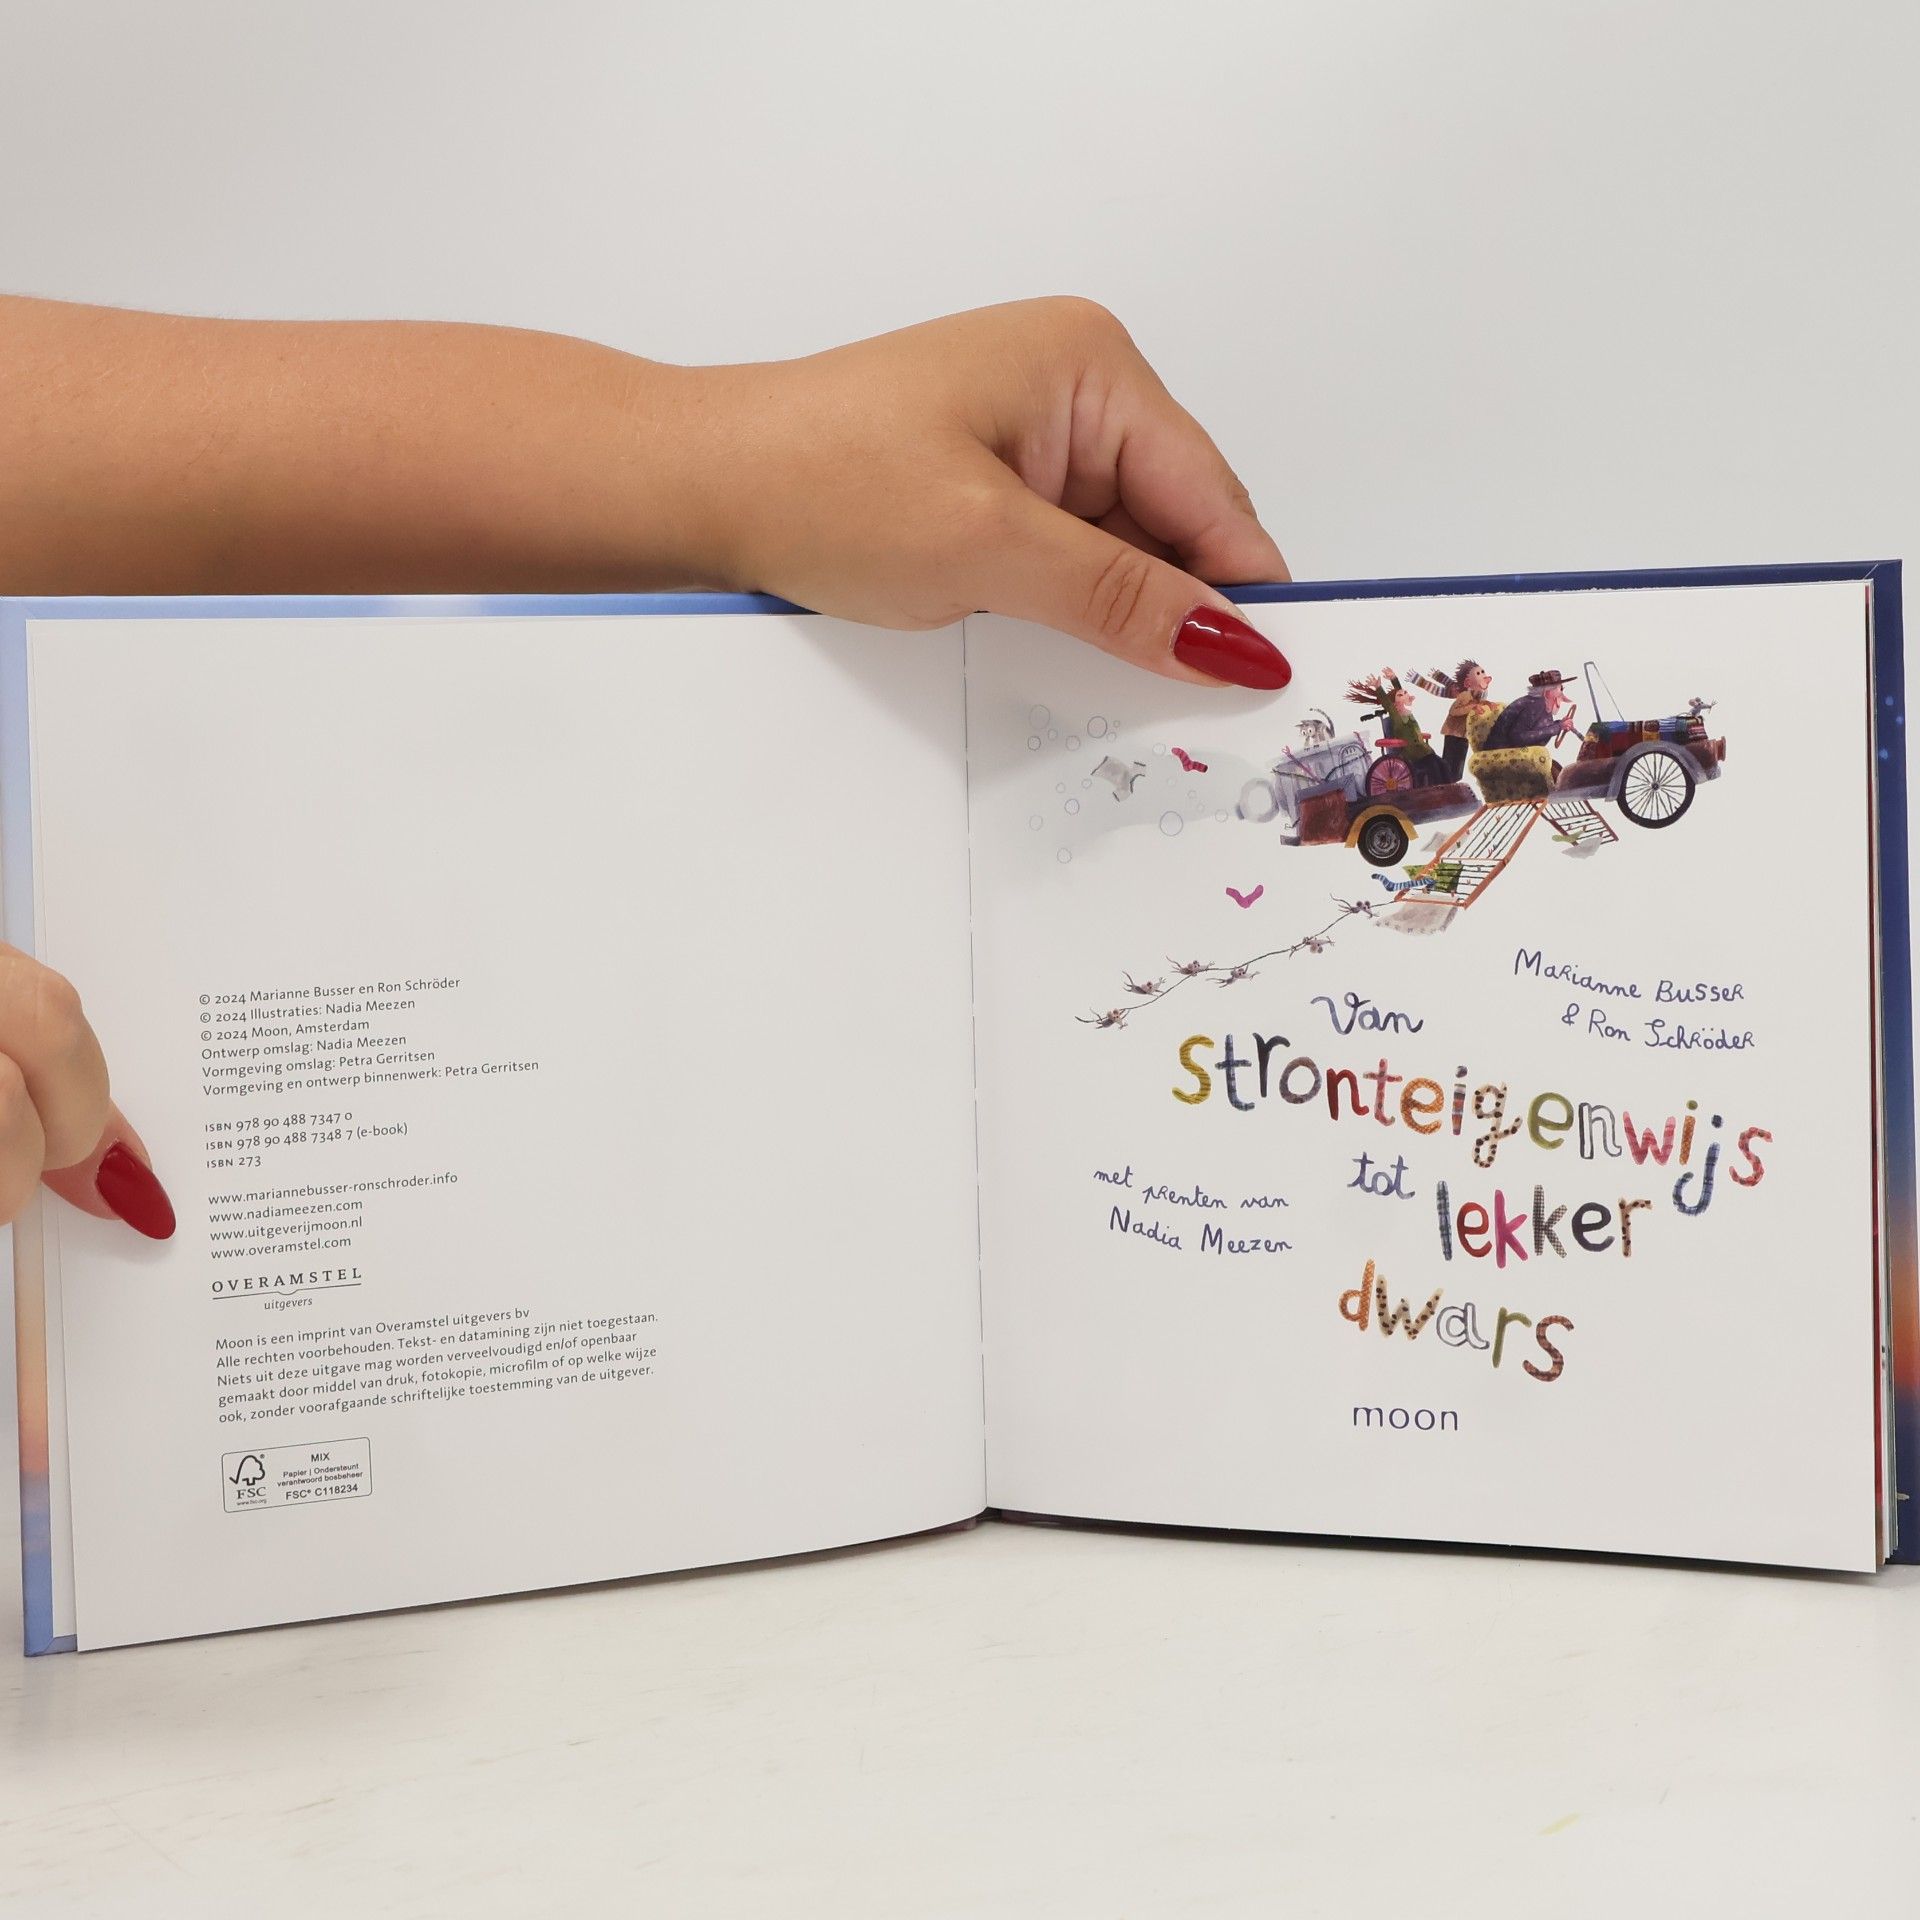 © 2024 Marianne Busser en Ron Schröder
© 2024 Illustraties: Nadia Meezen
© 2024 Moon, Amsterdam
Ontwerp omslag: Nadia Meezen
Vormgeving omslag: Petra Gerritsen
Vormgeving en ontwerp binnenwerk: Petra Gerritsen
ISBN 978 90 488 7347 0
ISBN 978 90 488 7348 7 (e-book)
ISBN 273
www.mariannebusser-ronschroder.info
www.nadiameezen.com
www.uitgeverijmoon.nl
www.overamstel.com
OVERAMSTEL
uitgevers
Moon is een imprint van Overamstel uitgevers bv
Alle rechten voorbehouden. Tekst- en datamining zijn niet toegestaan.
Niets uit deze uitgave mag worden verveelvoudigd en/of openbaar
gemaakt door middel van druk, fotokopie, microfilm of op welke wijze
ook, zonder voorafgaande schriftelijke toestemming van de uitgever.
FSC
www.fsc.org
MIX
Papier | Ondersteunt
verantwoord bosbeheer
FSC® C118234
Marianne Busser
& Ron Schröder
Van
stronteigenwijs
tot
lekker
dwars
met prenten van
Nadia Meezen
moon